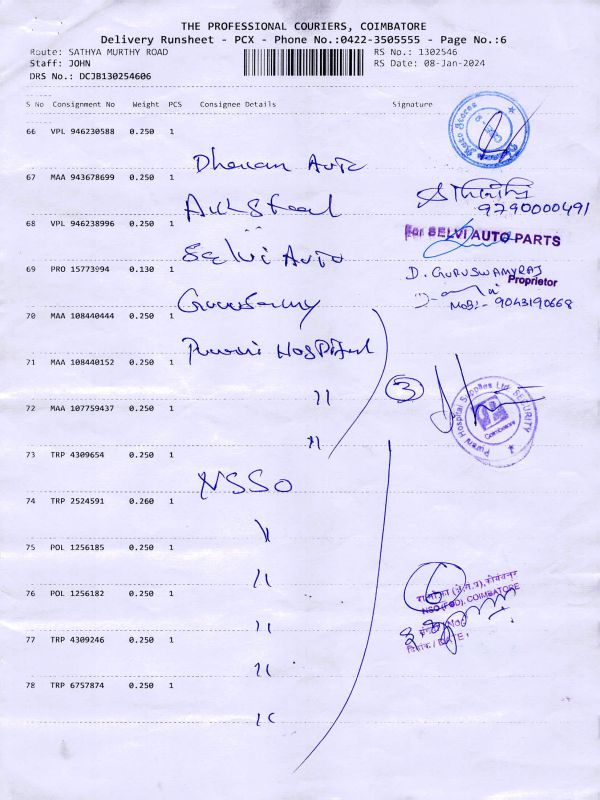 THE PROFESSIONAL COURIERS, COIMBATORE
Delivery Runsheet - PCX - Phone No.:0422-3505555 - Page No.:6
Route: SATHYA MURTHY ROAD RS No.: 1302546
Staff: JOHN RS Date: 08-Jan-2024
DRS No.: DCJB130254606
S No Consignment No Weight PCS Consignee Details Signature
66 VPL 946230588 0.250 1
Dhanam Auto
67 MAA 943678699 0.250 1
9790000491
68 VPL 946238996 0.250 1
Selvi Auto
For SELVI AUTO PARTS
69 PRO 15773994 0.130 1
D. GURUSWAMYRAJ
Proprietor
Mob:- 9043190668
Guruswamy
70 MAA 108440444 0.250 1
Purani Hospital
71 MAA 108440152 0.250 1
11
3
Purani Hospital Supplies Ltd SECURITY
Coimbatore
72 MAA 107759437 0.250 1
11
73 TRP 4309654 0.250 1
NSSO
74 TRP 2524591 0.260 1
11
75 POL 1256185 0.250 1
11
6
NSO (FOD), COIMBATORE
76 POL 1256182 0.250 1
11
दिनांक / DATE :
77 TRP 4309246 0.250 1
11
78 TRP 6757874 0.250 1
11